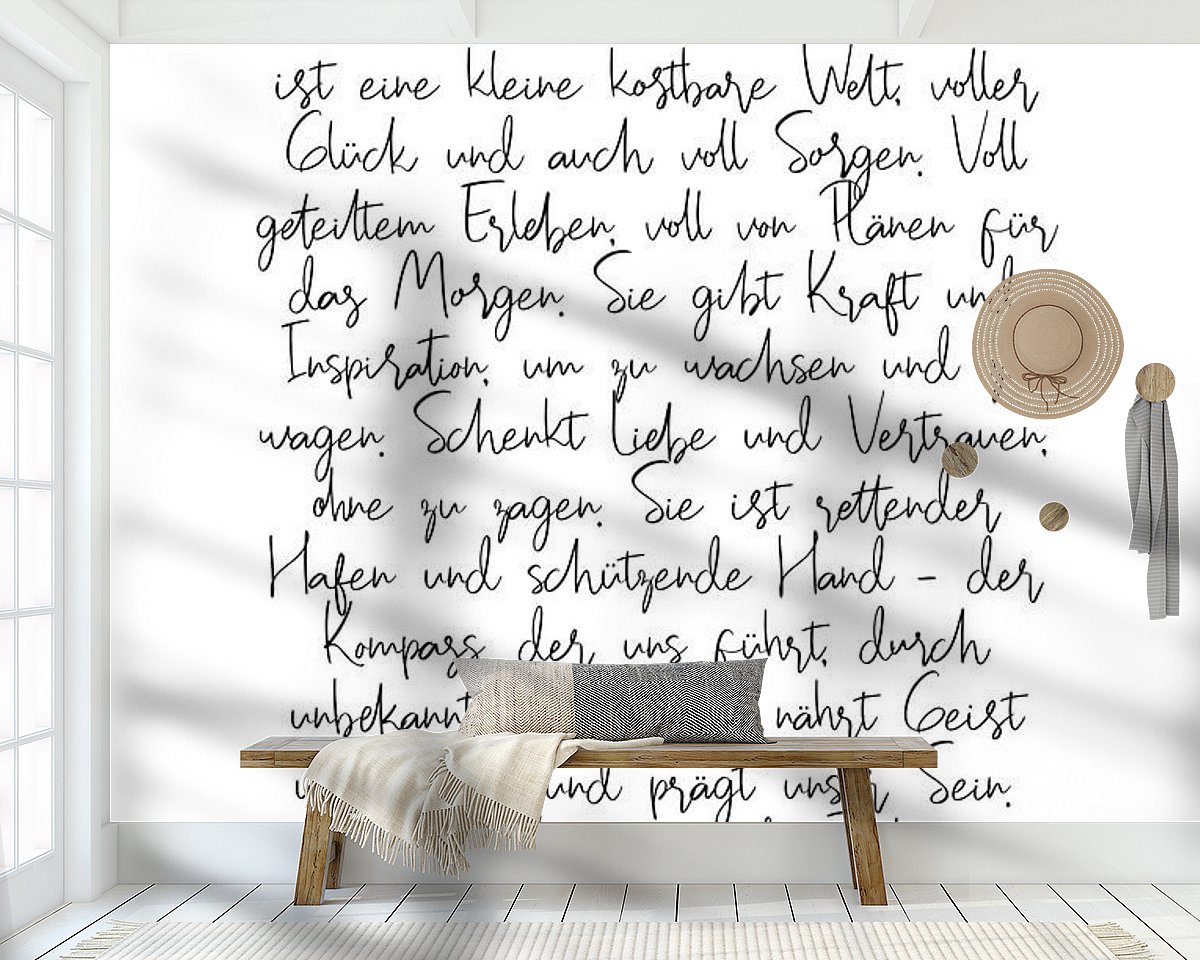 ist eine kleine kostbare Welt, voller
Glück und auch voll Sorgen. Voll
geteiltem Erleben, voll von Plänen für
das Morgen. Sie gibt Kraft und
Inspiration, um zu wachsen und
wagen. Schenkt Liebe und Vertrauen,
ohne zu zagen. Sie ist rettender
Hafen und schützende Hand – der
Kompass der uns führt, durch
unbekannt nährt Geist
und prägt unser Sein.